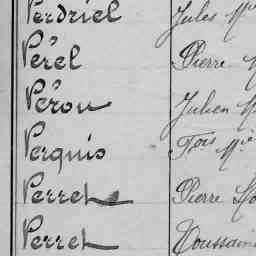 Perdriel Jules Mie
Pérel Pierre
Pérou Julien M
Perquis Fois Mie
Perret Pierre
Perret Toussain